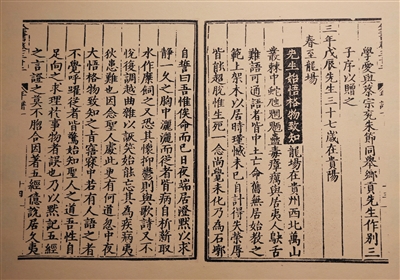 學愛與蔡宗兗朱節同舉鄉貢先生作別三
子序以贈之
三年戊辰先生三十七歲在貴陽
春至龍場
先生始悟格物致知龍場在貴州西北萬山
叢棘中蛇虺魍魎蠱毒瘴癘與居夷人鴃舌
難語可通語者皆中土亡命舊無居始教之
範土架木以居時瑾憾未已自計得失榮辱
皆能超脫惟生死一念尚覺未化乃為石墎
自誓曰吾惟俟命而已日夜端居澄默以求
靜一久之胸中灑灑而從者皆病自析薪取
水作糜飼之又恐其懷抑鬱則與歌詩又不
悅復調越曲雜以詼笑始能忘其為疾病夷
狄患難也因念聖人處此更有何道忽中夜
大悟格物致知之旨寤寐中若有人語之者
不覺呼躍從者皆驚始知聖人之道吾性自
足向之求理於事物者誤也乃以默記五經
之言證之莫不脗合因著五經臆說居久夷
十四